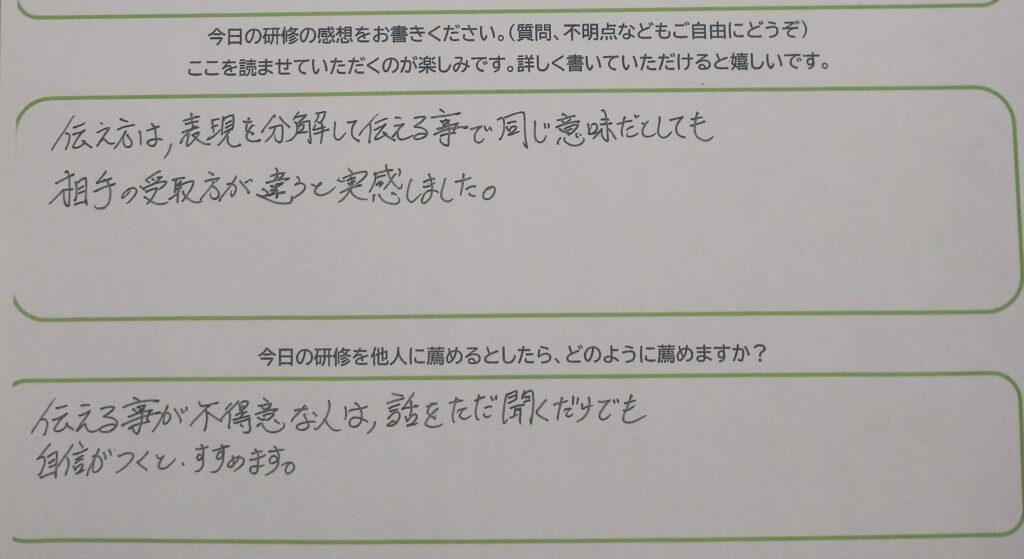 今日の研修の感想をお書きください。（質問、不明点などもご自由にどうぞ）
ここを読ませていただくのが楽しみです。詳しく書いていただけると嬉しいです。
伝え方は,表現を分解して伝える事で同じ意味だとしても
相手の受取方が違うと実感しました。
今日の研修を他人に薦めるとしたら、どのように薦めますか？
伝える事が不得意な人は,話をただ聞くだけでも
自信がつくと.すすめます。